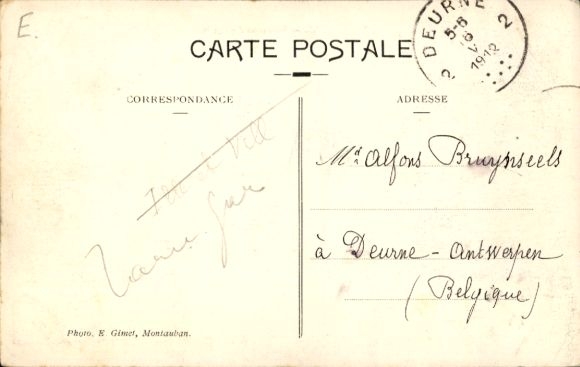 E.
CARTE POSTALE
DEURNE
2 2
5-6
1912
CORRESPONDANCE
ADRESSE
Alfons Bruynseels
à Deurne - Antwerpen
(Belgique)
Photo. E. Gimet, Montauban.